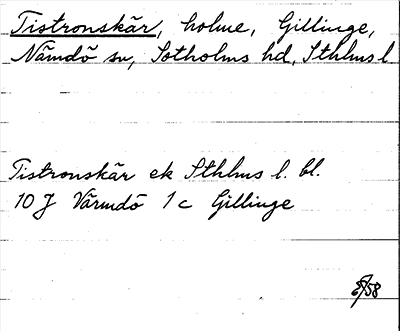 Tistronskär, holme, Gillinge,
Nämdö sn, Sotholms hd, Sthlms l
Tistronskär ek Sthlms l. bl.
10 J Värmdö 1 c Gillinge